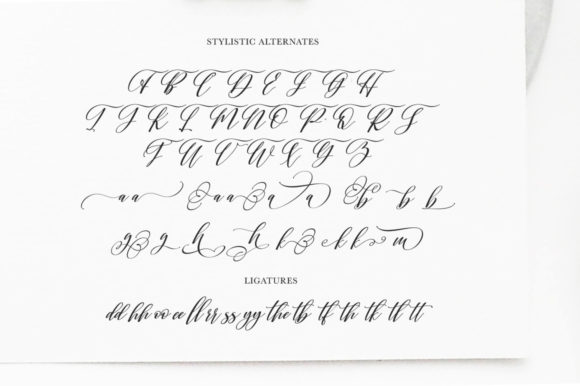 STYLISTIC ALTERNATES
A B C D E F G H
I J K L M N O P Q R S
T U V W X Y Z
a a a a a a b b b
g g h h k k k k m
LIGATURES
dd hh oo ee ll rr ss yy the tb tf th tk tl tt